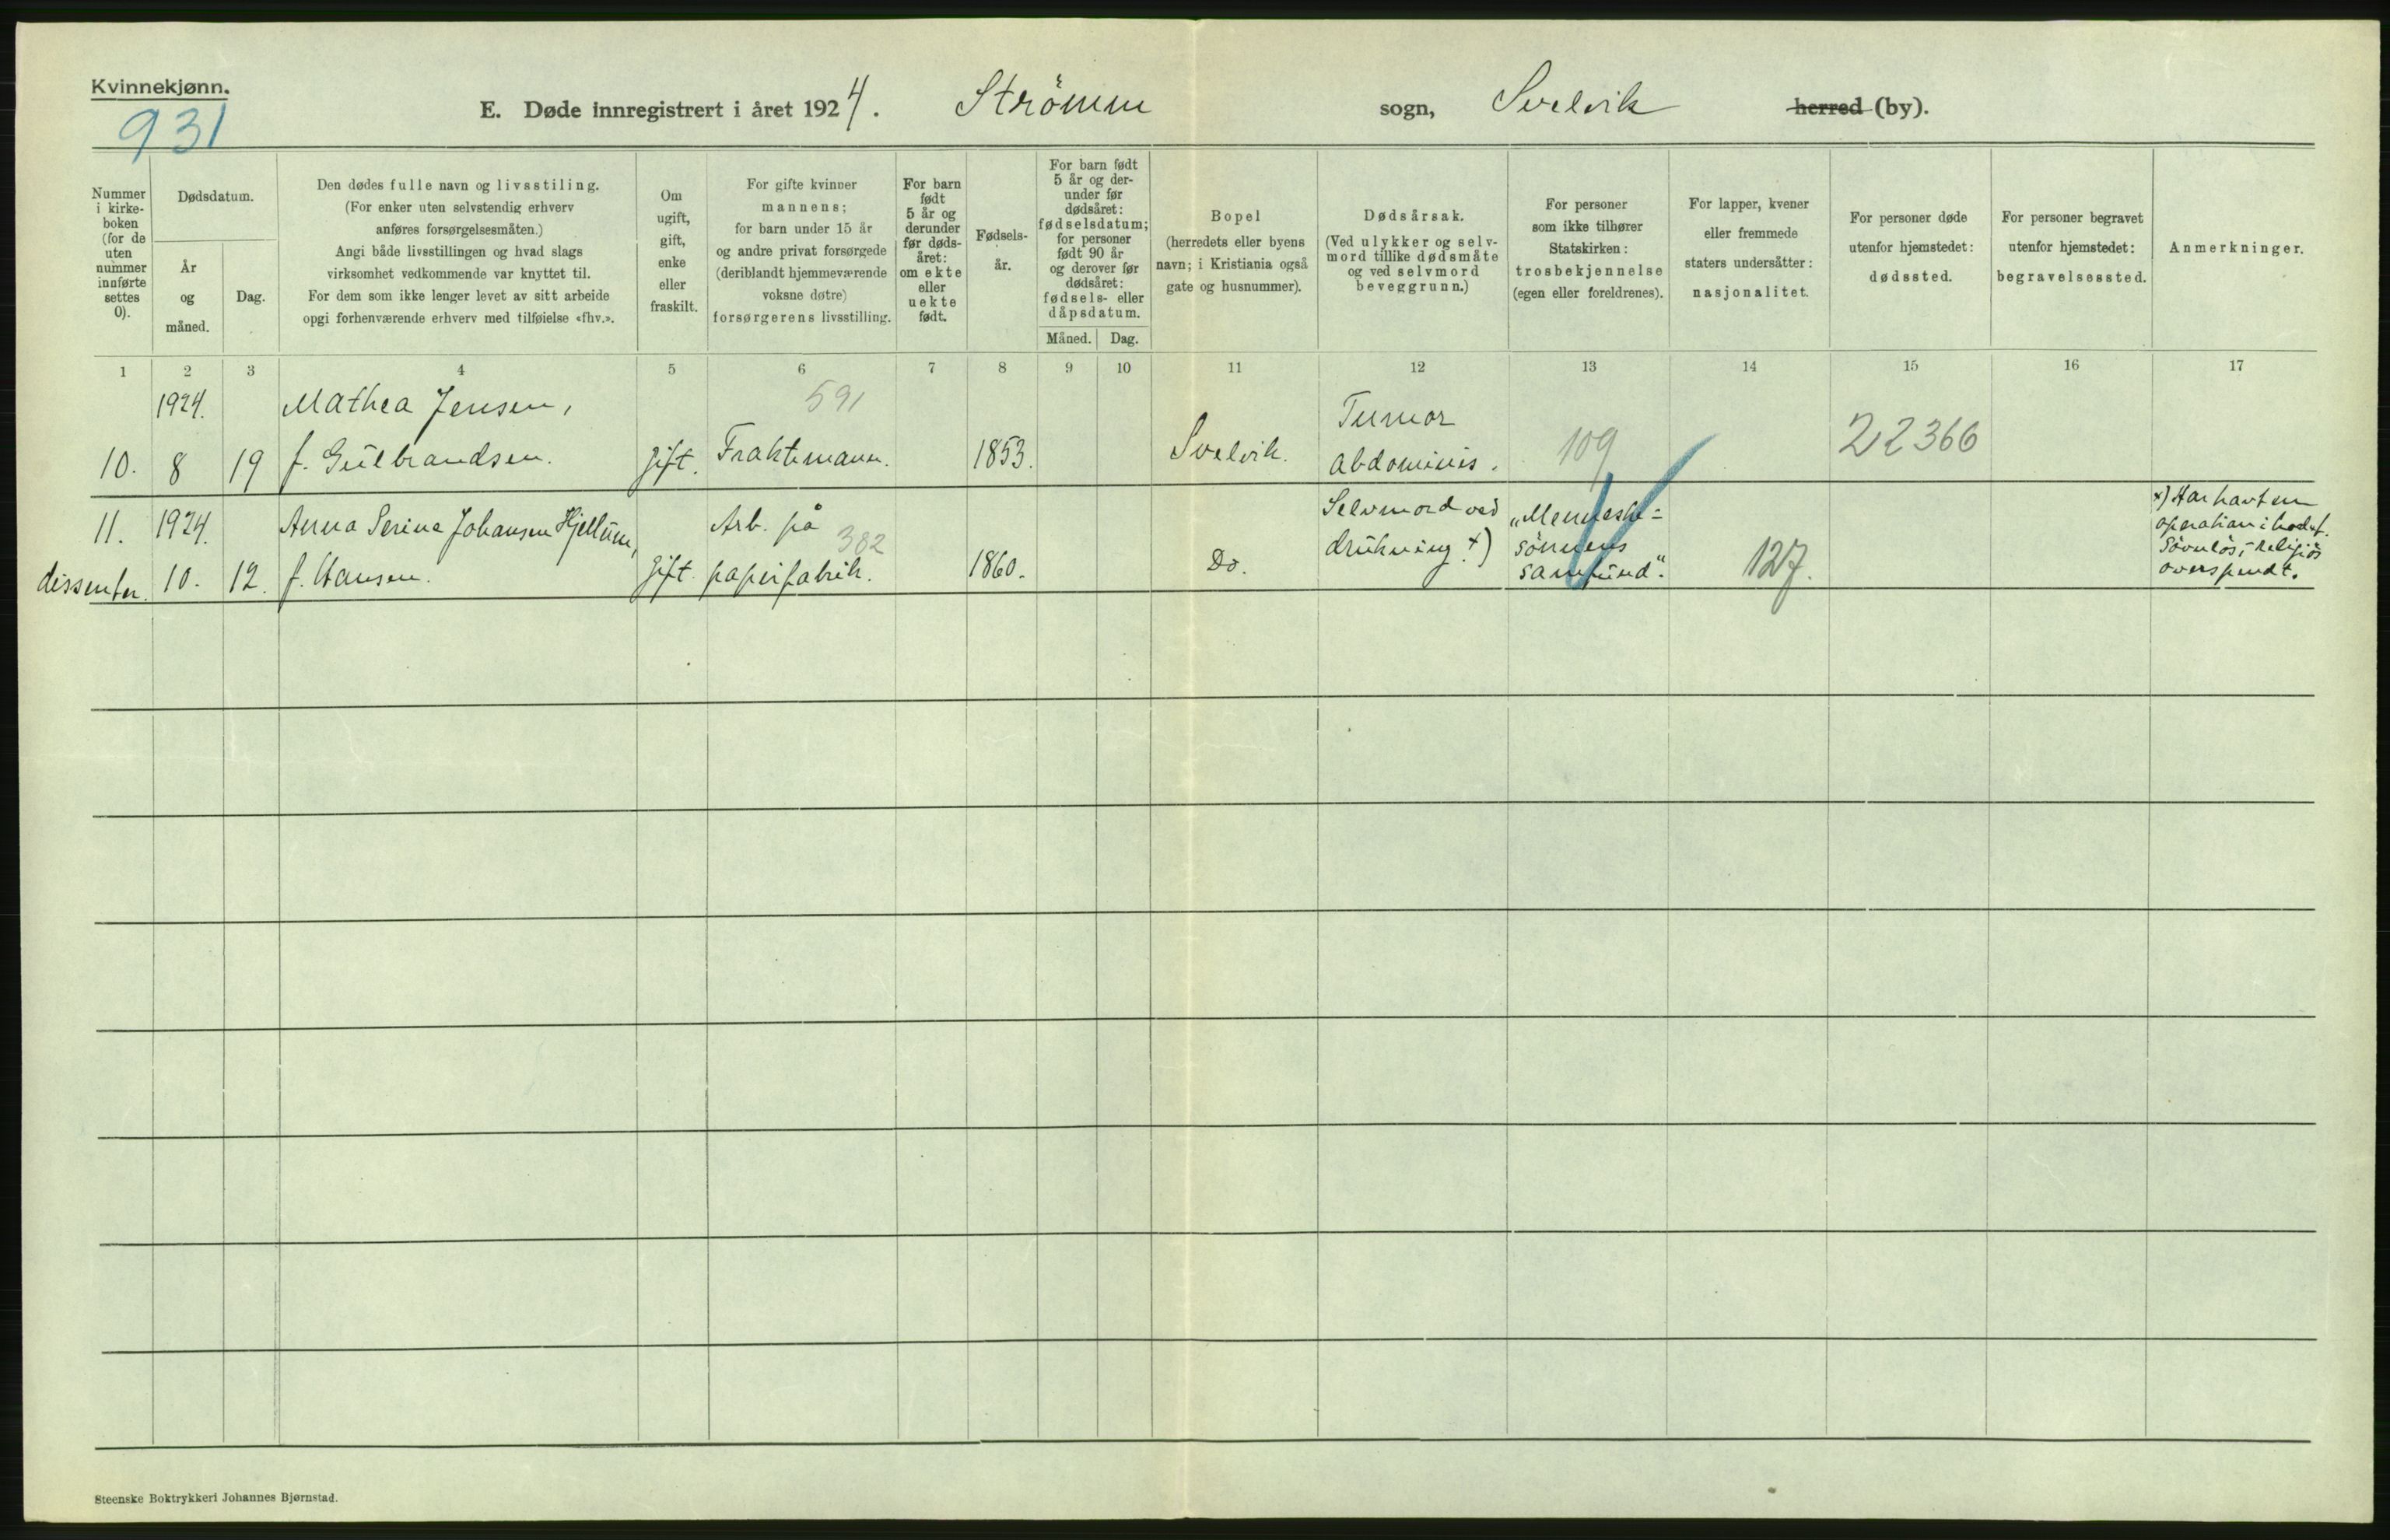 Kvinnekjønn.
931
E. Døde innregistrert i året 1924. Strömm sogn, Svelvik herred (by).
Nummer
i kirke-
boken
(for de
uten
nummer
innførte
settes
0).
Dødsdatum.
År
og
måned.
Dag.
Den dødes fulle navn og livsstiling.
(For enker uten selvstendig erhverv
anføres forsørgelsesmåten.)
Angi både livsstillingen og hvad slags
virksomhet vedkommende var knyttet til.
For dem som ikke lenger levet av sitt arbeide
opgi forhenværende erhverv med tilføielse «fhv.».
Om
ugift,
gift,
enke
eller
fraskilt.
For gifte kvinner
mannens;
for barn under 15 år
og andre privat forsørgede
(deriblandt hjemmeværende
voksne døtre)
forsørgerens livsstilling.
For barn
født
5 år og
derunder
før døds-
året:
om ekte
eller
uekte
født.
Fødsels-
år.
For barn født
5 år og der-
under før
dødsåret:
fødselsdatum;
for personer
født 90 år
og derover før
dødsåret:
fødsels- eller
dåpsdatum.
Måned. Dag.
Bopel
(herredets eller byens
navn; i Kristiania også
gate og husnummer).
Dødsårsak.
(Ved ulykker og selv-
mord tillike dødsmåte
og ved selvmord
beveggrunn.)
For personer
som ikke tilhører
Statskirken:
trosbekjennelse
(egen eller foreldrenes).
For lapper, kvener
eller fremmede
staters undersåtter:
nasjonalitet.
For personer døde
utenfor hjemstedet:
dødssted.
For personer begravet
utenfor hjemstedet:
begravelsessted.
Anmerkninger.
1 2 3 4 5 6 7 8 9 10 11 12 13 14 15 16 17
1924. Mathea Jensen, 591 Tumor
10. 8 19 f. Gulbrandsen. gift. Fraktemann. 1853. Svelvik. abdominis. 109 22366
11. 1924. Anna Serina Johansen Hjellum, Arb. på 382 Selvmord ved „Menneske=
dissenter. 10. 12. f. Hansen. gift papirfabrik. 1860. Do. drukning x) sönnens
samfund“. 127.
x) Har havt en
operation i hodet.
Sövnlös, religiös
overspendt.
Steenske Boktrykkeri Johannes Bjørnstad.